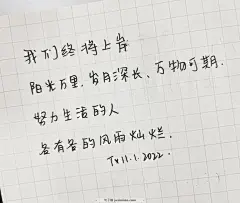 我们终将上岸
阳光万里，岁月深长、万物可期.
努力生活的人
各有各的风雨灿烂.
Tx11.1.2022.